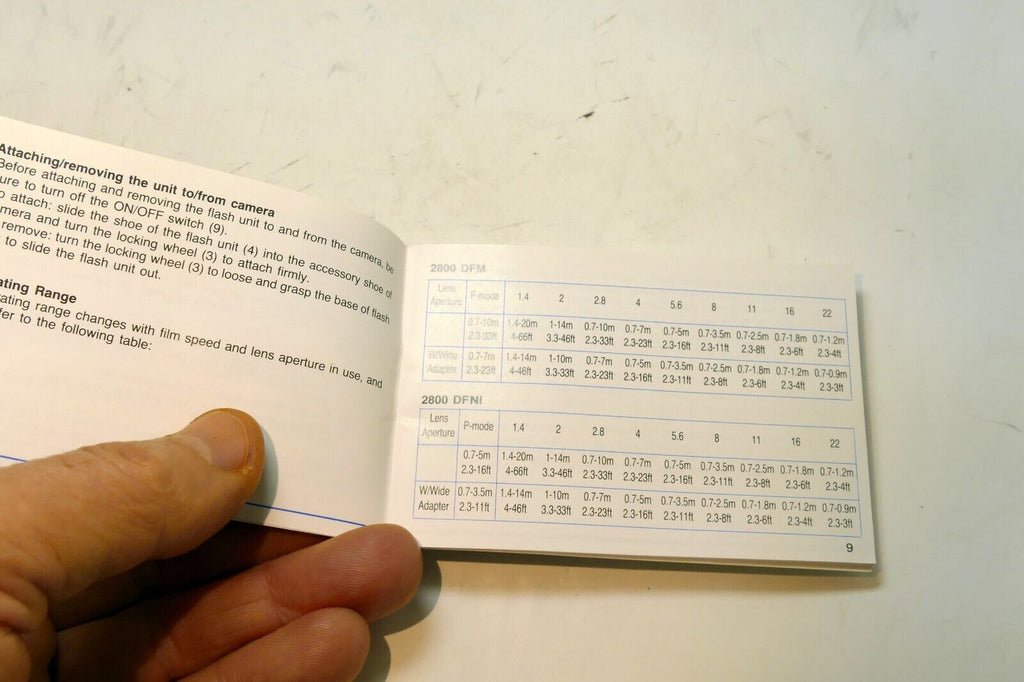 Attaching/removing the unit to/from camera
Before attaching and removing the flash unit to and from the camera, be
ure to turn off the ON/OFF switch (9).
o attach: slide the shoe of the flash unit (4) into the accessory shoe of
mera and turn the locking wheel (3) to attach firmly.
remove: turn the locking wheel (3) to loose and grasp the base of flash
to slide the flash unit out.
ating Range
rating range changes with film speed and lens aperture in use, and
fer to the following table:
2800 DFM
Lens Aperture P-mode 1.4 2 2.8 4 5.6 8 11 16 22
0.7-10m 1.4-20m 1-14m 0.7-10m 0.7-7m 0.7-5m 0.7-3.5m 0.7-2.5m 0.7-1.8m 0.7-1.2m
2.3-33ft 4-66ft 3.3-46ft 2.3-33ft 2.3-23ft 2.3-16ft 2.3-11ft 2.3-8ft 2.3-6ft 2.3-4ft
W/Wide 0.7-7m 1.4-14m 1-10m 0.7-7m 0.7-5m 0.7-3.5m 0.7-2.5m 0.7-1.8m 0.7-1.2m 0.7-0.9m
Adapter 2.3-23ft 4-46ft 3.3-33ft 2.3-23ft 2.3-16ft 2.3-11ft 2.3-8ft 2.3-6ft 2.3-4ft 2.3-3ft
2800 DFNI
Lens Aperture P-mode 1.4 2 2.8 4 5.6 8 11 16 22
0.7-5m 1.4-20m 1-14m 0.7-10m 0.7-7m 0.7-5m 0.7-3.5m 0.7-2.5m 0.7-1.8m 0.7-1.2m
2.3-16ft 4-66ft 3.3-46ft 2.3-33ft 2.3-23ft 2.3-16ft 2.3-11ft 2.3-8ft 2.3-6ft 2.3-4ft
W/Wide 0.7-3.5m 1.4-14m 1-10m 0.7-7m 0.7-5m 0.7-3.5m 0.7-2.5m 0.7-1.8m 0.7-1.2m 0.7-0.9m
Adapter 2.3-11ft 4-46ft 3.3-33ft 2.3-23ft 2.3-16ft 2.3-11ft 2.3-8ft 2.3-6ft 2.3-4ft 2.3-3ft
9